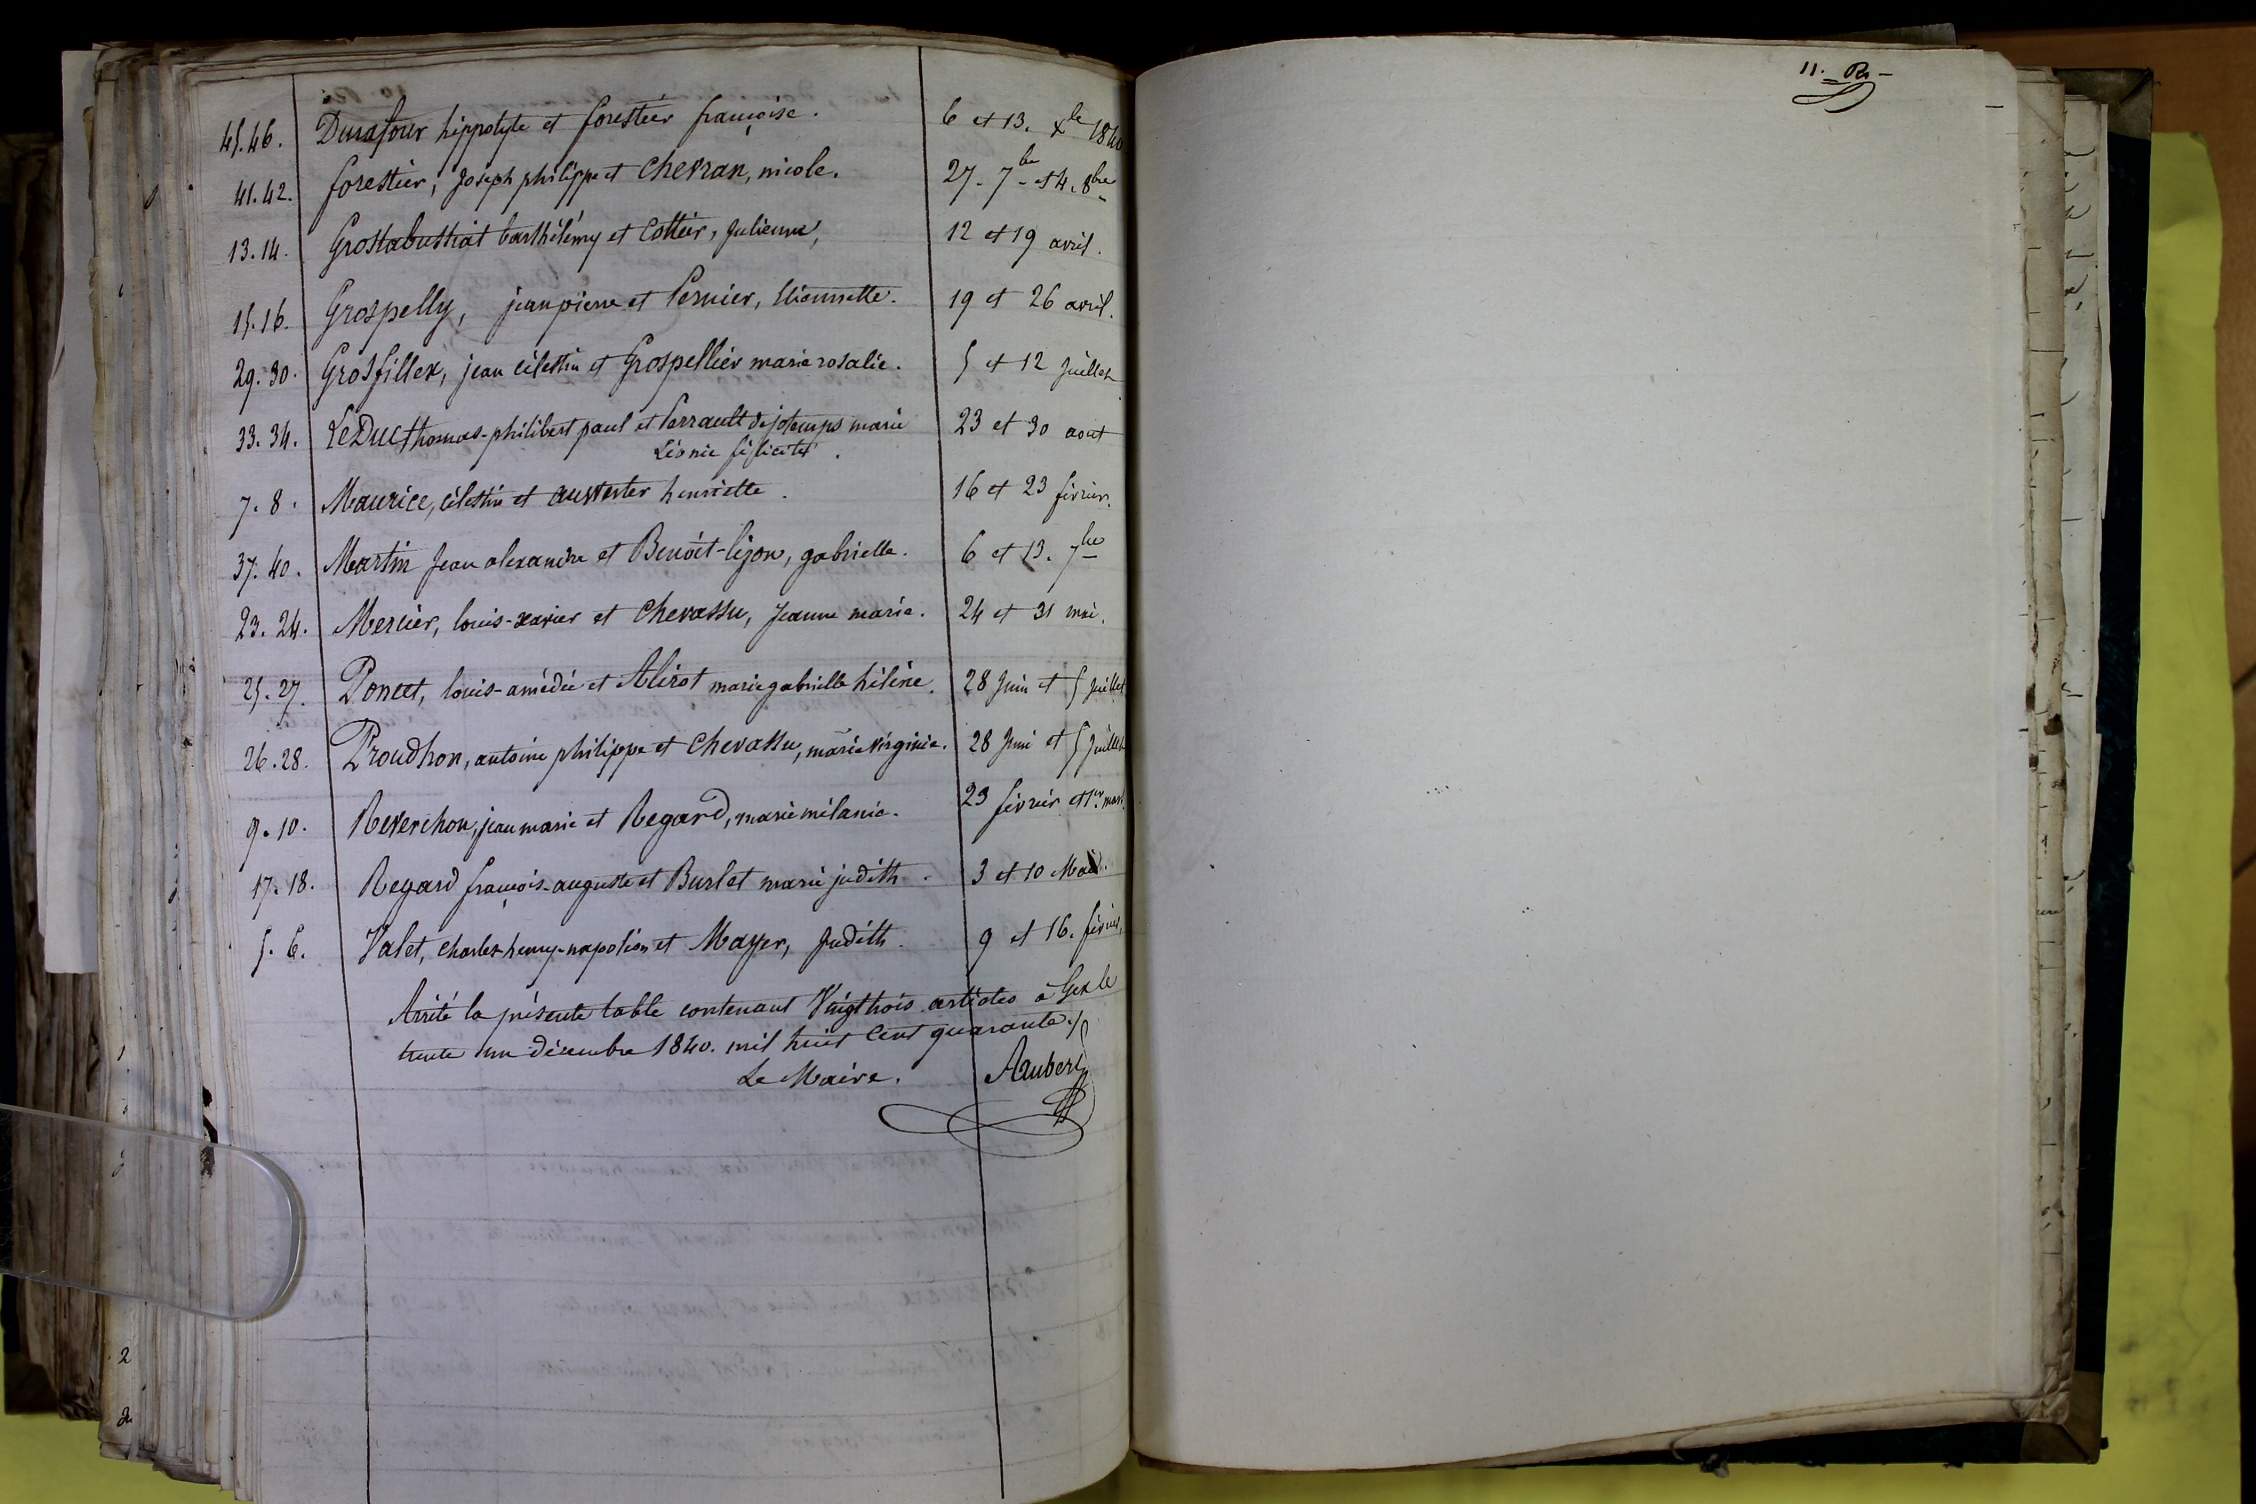 45.46. Durafour hippolyte et forestier françoise. 6 et 13. Xbre 1840
41.42. forestier, Joseph philippe et Chevran, nicole. 27. 7bre et 4. 8bre
13.14. Grostabussiat barthélémy et Cottier, Julienne, 12 et 19 avril.
15.16. Grospelly, jean pierre et Pernier, Etiennette. 19 et 26 avril.
29.30. Grosfillex, jean célestin et Grospellier marie rosalie. 5 et 12 Juillet
33.34. LeDuc thomas-philibert paul et Perrault de jotemps marie 23 et 30 aout
Léonie félicité.
7.8. Maurice, célestin et henriette. 16 et 23 février.
37.40. Martin Jean alexandre et Benoit-lizon, gabrielle. 6 et 13. 7bre
23.24. Mercier, louis-xavier et Chevassu, Jeanne marie. 24 et 31 mai.
25.27. Poncet, louis-amédée et Alirot marie gabrielle hélène. 28 Juin et 5 Juillet
26.28. Proudhon, antoine philippe et Chevassu, marie virginie. 28 Juin et 5 Juillet
9.10. Reverchon, jean marie et Regard, marie mélanie. 23 février et 1er mars.
17.18. Regard françois-auguste et Burlet marie judith. 3 et 10 Mai.
5.6. Valet, charles-henry-napoléon et Mayer, Judith. 9 et 16. février,
Arrêté la présente table contenant Vingt trois articles à Gex le
trente un décembre 1840. mil huit Cent quarante./.
Le Maire. Aubert
11.